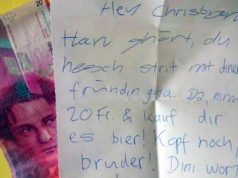 Hey Christian
Han ghört, du
hesch strit mit dine
fründin gha. Da, nim
20 Fr. & kauf dir
es bier! Kopf hoch,
bruder! Dini wort